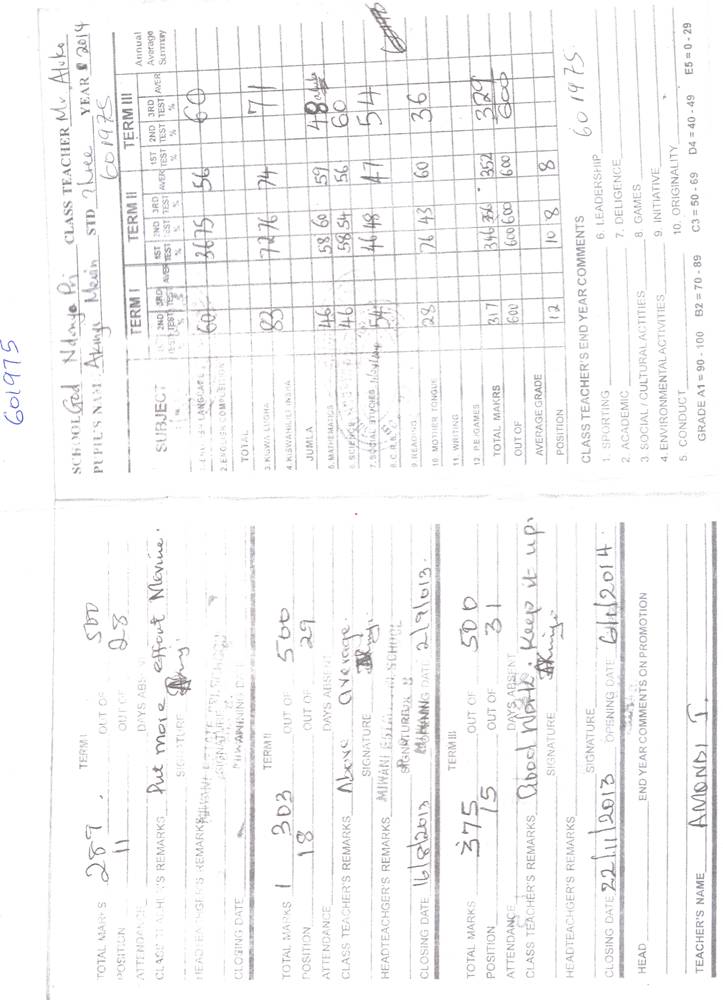 601975
SCHOOL God Ndonyo Pri CLASS TEACHER Mr Aloko
PUPIL'S NAME Akinyi Mevin STD Three YEAR 2014
601975
SUBJECT TERM I TERM II TERM III Annual Average Summary
1ST TEST % 2ND TEST % 3RD TEST % AVER 1ST TEST % 2ND TEST % 3RD TEST % AVER 1ST TEST % 2ND TEST % 3RD TEST % AVER
1. ENGLISH LANGUAGE 60 36 75 56 60
2. ENGLISH COMPOSITION
TOTAL
3. KISWA LUGHA 83 72 76 74 71
4. KISWAHILI INSHA
JUMLA
5. MATHEMATICS 46 58 60 59 48
6. SCIENCE 46 58 54 56 60
7. SOCIAL STUDIES 54 46 48 47 54
8. C.R.E.
9. READING 28 76 43 60 36
10. MOTHER TONGUE
11. WRITING
12. P.E. GAMES
TOTAL MAKRS 317 346 356 352 329
OUT OF 600 600 600 600 600
AVERAGE GRADE
POSITION 12 10 8 8
CLASS TEACHER'S END YEAR COMMENTS 601975
1. SPORTING 6. LEADERSHIP
2. ACADEMIC 7. DELIGENCE
3 SOCIAL / CULTURAL ACTITIES 8. GAMES
4. ENVIRONMENTAL ACTIVITIES 9. INITIATIVE
5. CONDUCT 10. ORIGINALITY
GRADE A1 = 90 - 100 B2 = 70 - 89 C3 = 50 - 69 D4 = 40 - 49 E5 = 0 - 29
TERM I
TOTAL MARKS 289 OUT OF 500
POSITION 11 OUT OF 28
ATTENDANCE DAYS ABSENT
CLASS TEACHER'S REMARKS Put more effort Mevine.
SIGNATURE
HEADTEACHGER'S REMARKS
SIGNATURE
CLOSING DATE OPENING DATE
TERM II
TOTAL MARKS 303 OUT OF 500
POSITION 18 OUT OF 29
ATTENDANCE DAYS ABSENT
CLASS TEACHER'S REMARKS Above average.
SIGNATURE
HEADTEACHGER'S REMARKS MIWANI SCHOOL
SIGNATURE
CLOSING DATE 16/8/2013 OPENING DATE 2/9/2013.
TERM III
TOTAL MARKS 375 OUT OF 500
POSITION 15 OUT OF 31
ATTENDANCE DAYS ABSENT
CLASS TEACHER'S REMARKS Good Work. Keep it up.
SIGNATURE
HEADTEACHGER'S REMARKS
SIGNATURE
CLOSING DATE 22/11/2013 OPENING DATE 6/1/2014.
HEAD END YEAR COMMENTS ON PROMOTION
TEACHER'S NAME AMONDI J.